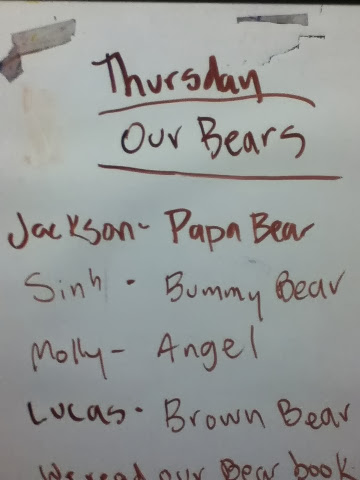 Thursday
Our Bears
Jackson- Papa Bear
Sinh - Bummy Bear
Molly- Angel
Lucas- Brown Bear
We read our Bear book